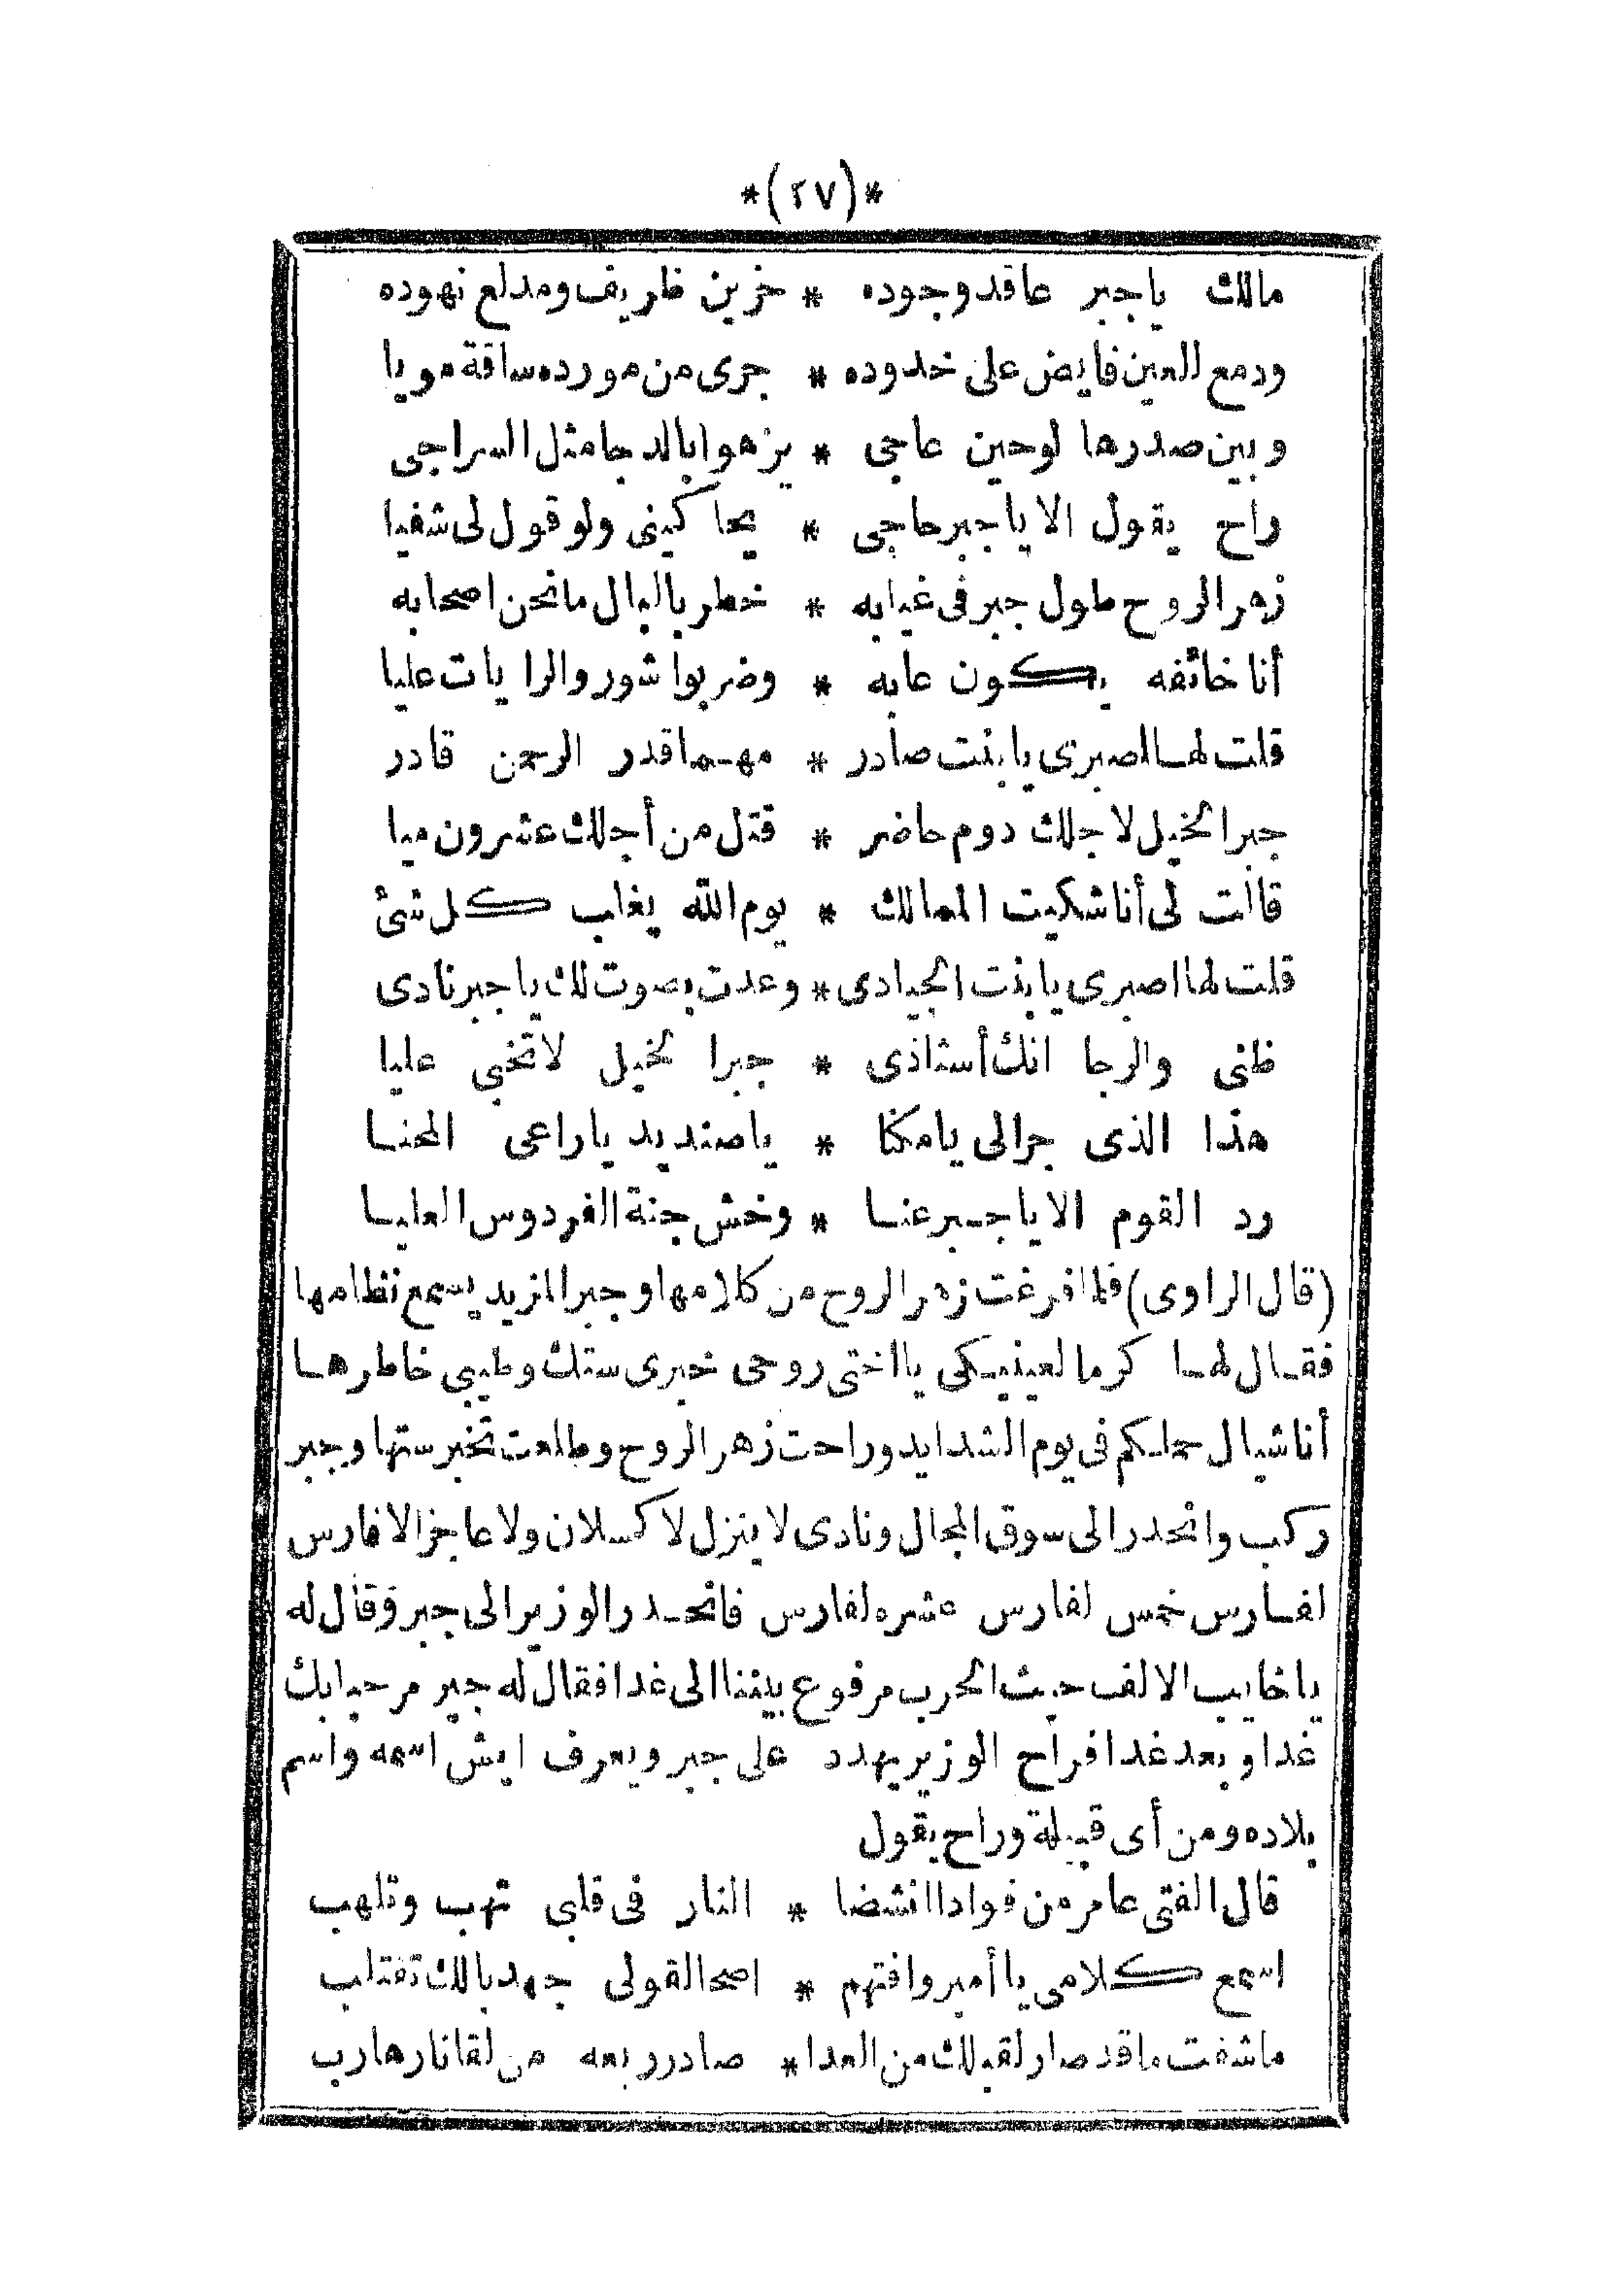 *(٢٧)*
مالك ياجبر عاقد وجوده * خزين ظريف ومدلع نهوده
ودمع العين فايض على خدوده * جرى من مورده ساقة مويا
وبين صدرها لوحين عاجى * يزهوا بالدجا مثل السراجى
راح يقول الا ياجبر حاجى * يحا كينى ولو قول لى شفيا
زهر الروح طول جبر فى غيابه * خطر بالبال مانحن اصحابه
أنا خائفه يكون عابه * وضربوا شور والرايات عليا
قلت لها اصبرى يابنت صادر * مهما قدر الرحمن قادر
جبر الخيل لاجلك دوم حاضر * قتل من أجلك عشرون ميا
قالت لى أنا شكيت المعالك * يوم الله يغلب كل شئ
قلت لها اصبرى يابنت الجيادى * وعدت بصوت لك ياجبر نادى
ظنى والرجا انك أستاذى * جبرا لخيل لاتخبى عليا
هذا الذى جرالى يامكنا * ياصنديد ياراعى المحنا
رد القوم الا ياجبر عنا * وخش جنة الفردوس العليا
(قال الراوى) فلما فرغت زهر الروح من كلامها وجبر المزيد يسمع نظامها
فقال لها كرما لعينيكى يا اختى روحى خبرى ستك وطيبى خاطرها
أنا شيال حملكم فى يوم الشدايد وراحت زهر الروح وطلعت تخبر ستها وجبر
ركب وانحدر الى سوق المجال ونادى لا ينزل لا كسلان ولا عاجز الا فارس
لفارس خمس لفارس عشره لفارس فانحدر الوزير الى جبر وقال له
يا خايب الالف حيث الحرب مرفوع بيننا الى غدا فقال له جبر مرحبا بك
غدا وبعد غدا فراح الوزير يهدد على جبر ويعرف ايش اسمه واسم
بلاده ومن أى قبيلة وراح يقول
قال الفتى عامر من فوادا انشضا * النار فى قلبى تهب وتلهب
اسمع كلامى يا أمير وافتهم * اصحا لقولى جهد بالك تغتلب
ماشفت ماقد صار لقبلك من العدا * صادر ربعه من لقانا رهارب